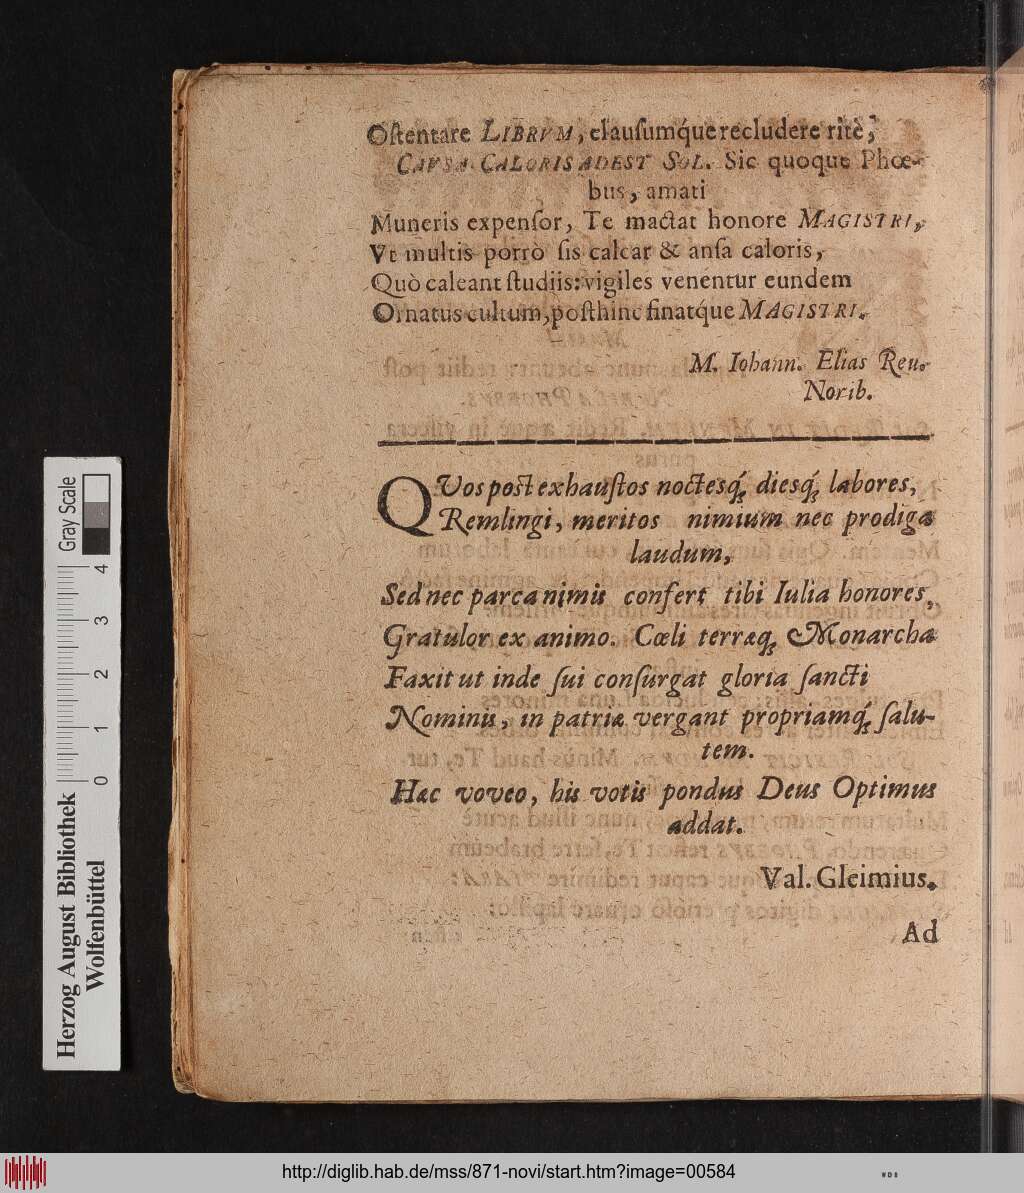 Oſtentare LIBRVM, clauſumq́ue recludere ritè,
CAVSA CALORIS ADEST SOL. Sic quoque Phœ-
bus, amati
Muneris expenſor, Te mactat honore MAGISTRI,
Vt multis porrò ſis calcar & anſa caloris,
Quò caleant ſtudiis: vigiles venentur eundem
Ornatus cultum, poſthinc finatq́ue MAGISTRI.
M. Iohann. Elias Reu.
Norib.
QVos poſt exhauſtos noctesq́; diesq́; labores,
Remlingi, meritos nimium nec prodiga
laudum,
Sed nec parca nimis confert tibi Iulia honores,
Gratulor ex animo. Cœli terræq; Monarcha
Faxit ut inde ſui conſurgat gloria ſancti
Nominis, in patriæ vergant propriamq́; ſalu-
tem.
Hæc voveo, his votis pondus Deus Optimus
addat.
Val. Gleimius.
Ad
Gray Scale
4
3
2
1
0
Herzog August Bibliothek
Wolfenbüttel
http://diglib.hab.de/mss/871-novi/start.htm?image=00584